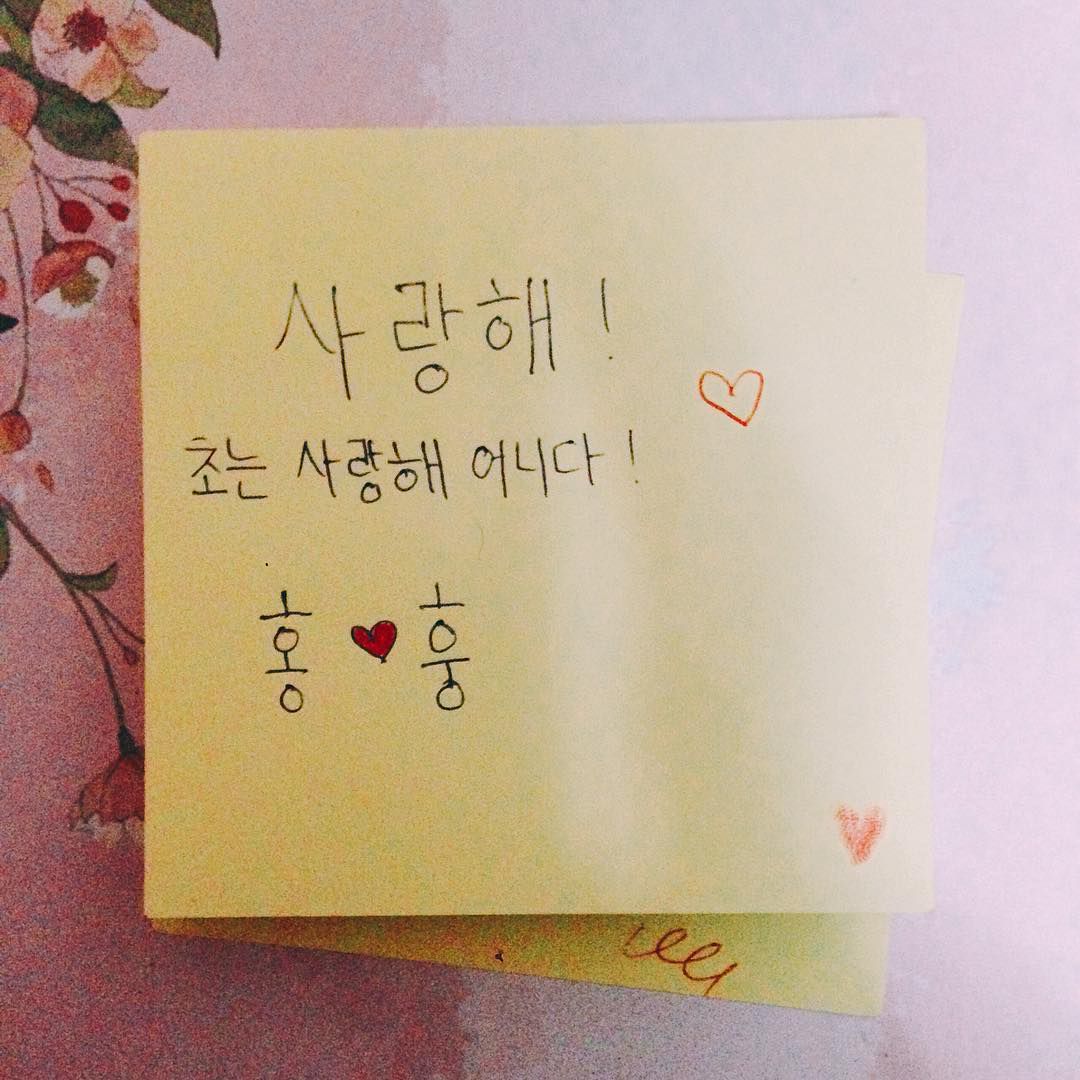 사랑해!
초는 사랑해 어니다!
홍 ♥ 훙